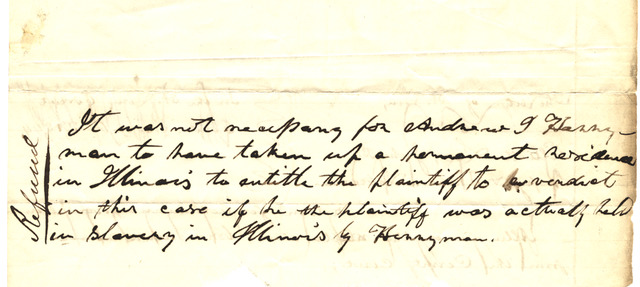 Refused
It was not necessary for Andrew J Henny-
man to have taken up a permanent residence
in Illinois to entitle the plaintiff to a verdict
in this case if he the plaintiff was actually held
in slavery in Illinois by Hennyman.